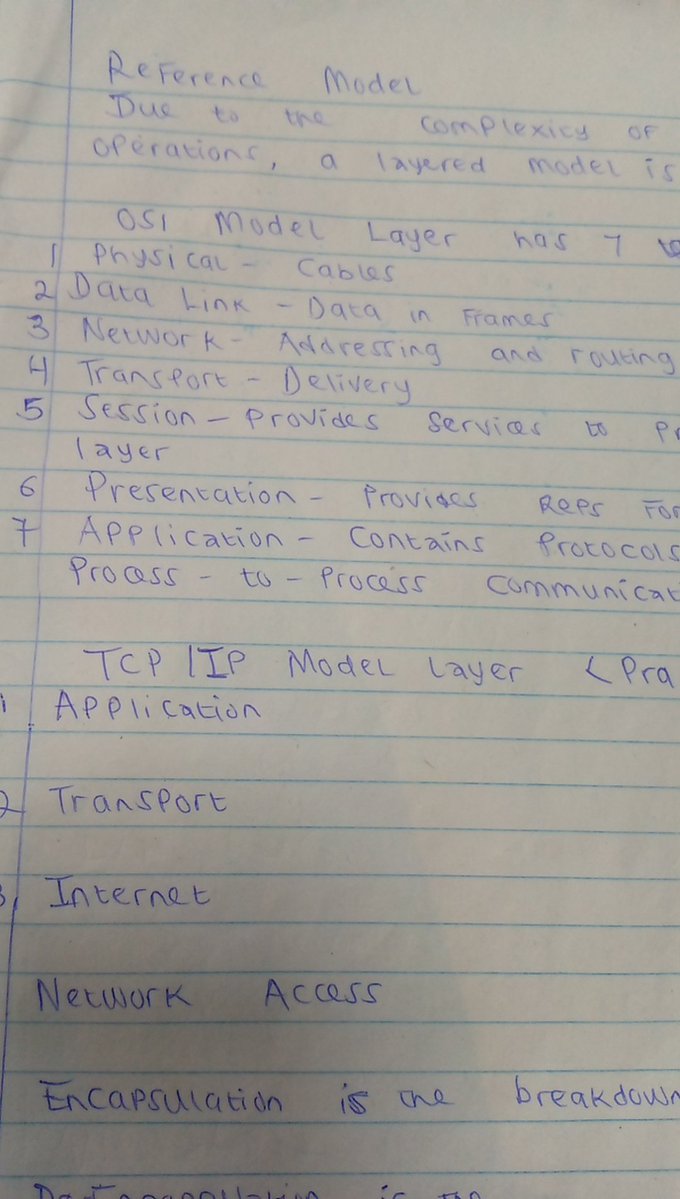 Reference Model
Due to the complexity of
operations, a layered model is
OSI Model Layer has 7
1 Physical - Cables
2 Data Link - Data in Frames
3 Network - Addressing and routing
4 Transport - Delivery
5 Session - Provides services to Pr
layer
6 Presentation - Provides Reps For
7 Application - Contains Protocols
Process - to - Process communicat
TCP/IP Model Layer < Pra
1 Application
2 Transport
3 Internet
Network Access
Encapsulation is the breakdown